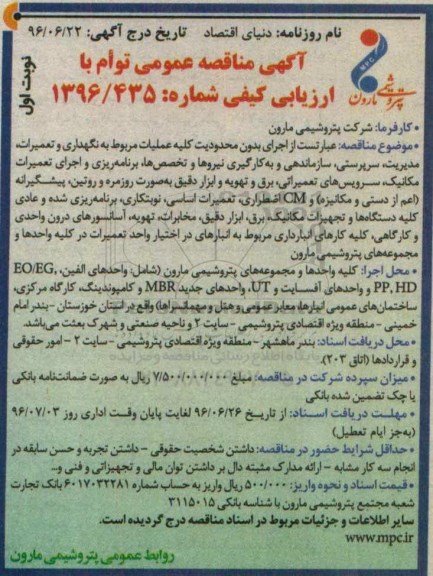 نام روزنامه: دنیای اقتصاد    تاریخ درج آگهی: ۹۶/۰۶/۲۲
نوبت اول
MPC
پتروشیمی مارون
آگهی مناقصه عمومی توأم با
ارزیابی کیفی شماره: ۱۳۹۶/۴۳۵
• کارفرما: شرکت پتروشیمی مارون
• موضوع مناقصه: عبارتست از اجرای بدون محدودیت کلیه عملیات مربوط به نگهداری و تعمیرات،
مدیریت، سرپرستی، سازماندهی و به‌کارگیری نیروها و تخصص‌ها، برنامه‌ریزی و اجرای تعمیرات
مکانیک، سرویس‌های تعمیراتی، برق و تهویه و ابزار دقیق به‌صورت روزمره و روتین، پیشگیرانه
(اعم از دستی و مکانیزه) و CM اضطراری، تعمیرات اساسی، نوبتکاری، برنامه‌ریزی شده و عادی
کلیه دستگاه‌ها و تجهیزات مکانیک، برق، ابزار دقیق، مخابرات، تهویه، آسانسورهای درون واحدی
و کارگاهی، کلیه کارهای انبارداری مربوط به انبارهای در اختیار واحد تعمیرات در کلیه واحدها و
مجموعه‌های پتروشیمی مارون
• محل اجرا: کلیه واحدها و مجموعه‌های پتروشیمی مارون (شامل: واحدهای الفین، EO/EG,
PP, HD و واحدهای آفسایت و UT، واحدهای جدید MBR و کامپوندینگ، کارگاه مرکزی،
ساختمان‌های عمومی انبارها، معابر عمومی و هتل و مهمانسراها) واقع در استان خوزستان - بندر امام
خمینی - منطقه ویژه اقتصادی پتروشیمی - سایت ۲ و ناحیه صنعتی و شهرک بعثت می‌باشد.
• محل دریافت اسناد: بندر ماهشهر - منطقه ویژه اقتصادی پتروشیمی - سایت ۲ - امور حقوقی
و قراردادها (اتاق ۲۰۳).
• میزان سپرده شرکت در مناقصه: مبلغ ۷/۵۰۰/۰۰۰/۰۰۰ ریال به صورت ضمانت‌نامه بانکی
یا چک تضمین شده بانکی
• مهلت دریافت اسناد: از تاریخ ۹۶/۰۶/۲۶ لغایت پایان وقت اداری روز ۹۶/۰۷/۰۳
(به‌جز ایام تعطیل)
• حداقل شرایط حضور در مناقصه: داشتن شخصیت حقوقی - داشتن تجربه و حسن سابقه در
انجام سه کار مشابه - ارائه مدارک مثبته دال بر داشتن توان مالی و تجهیزاتی و فنی و..
• قیمت اسناد و نحوه واریز: ۵۰۰/۰۰۰ ریال واریز به حساب شماره ۶۰۱۷۰۳۲۲۸۱ بانک تجارت
شعبه مجتمع پتروشیمی مارون با شناسه بانکی ۳۱۱۵۰۱۵
سایر اطلاعات و جزئیات مربوط در اسناد مناقصه درج گردیده است.
www.mpc.ir
روابط عمومی پتروشیمی مارون